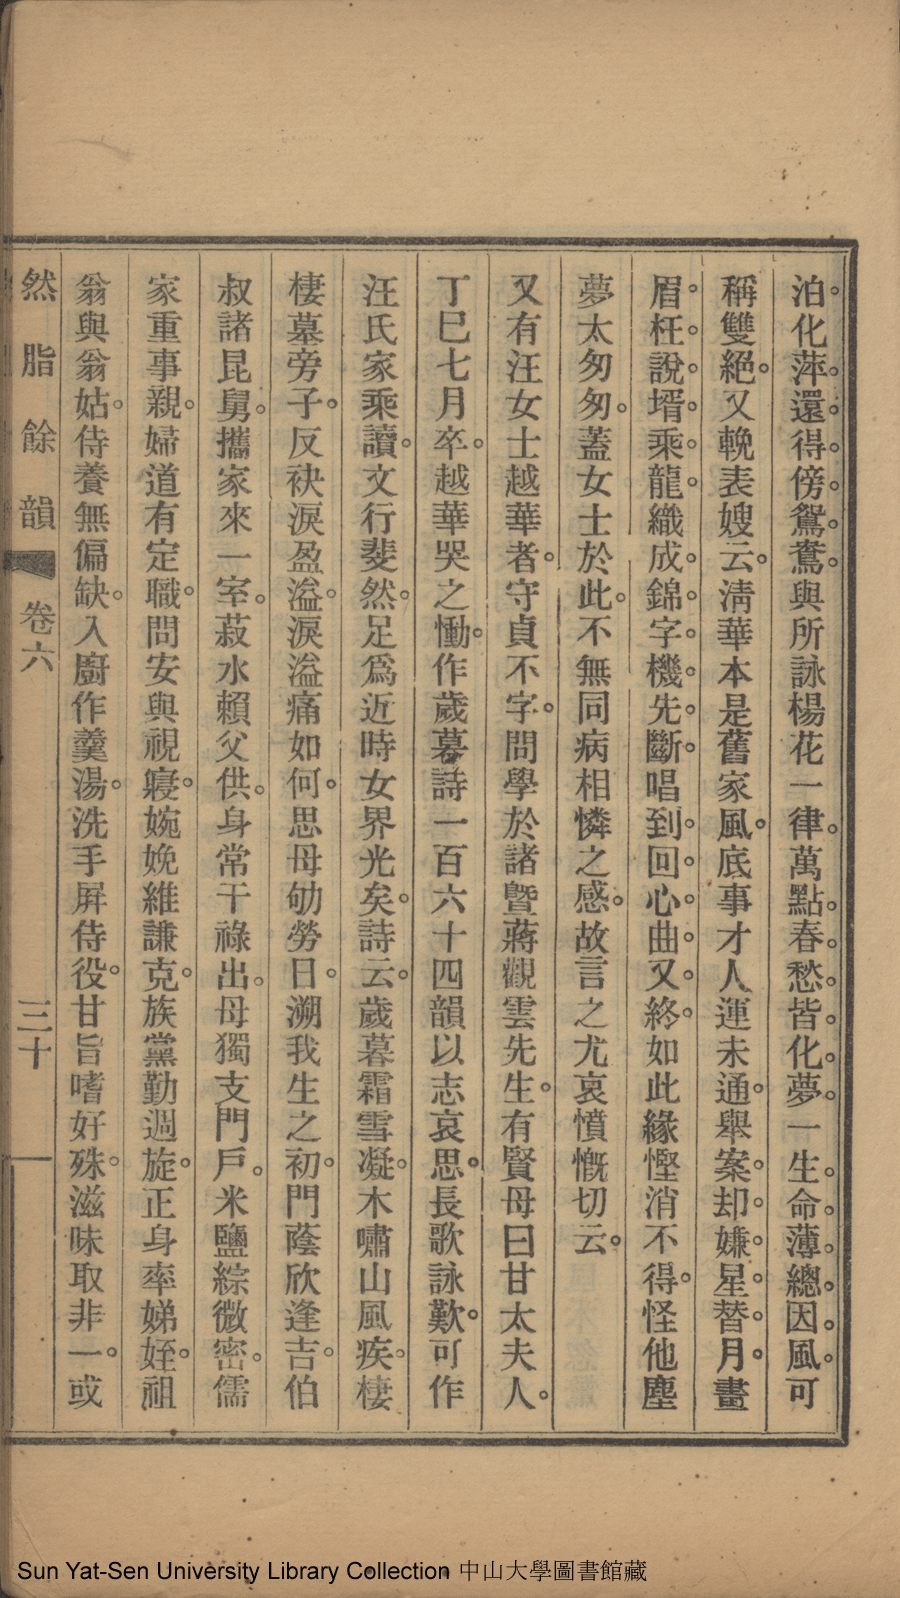 泊化萍還得傍鴛鴦與所詠楊花一律萬點春愁皆化夢一生命薄總因風可
稱雙絕又輓表嫂云淸華本是舊家風底事才人運未通舉案却嫌星替月畫
眉枉說壻乘龍織成錦字機先斷唱到回心曲又終如此緣慳消不得怪他塵
夢太匆匆蓋女士於此不無同病相憐之感故言之尤哀憤慨切云
又有汪女士越華者守貞不字問學於諸暨蔣觀雲先生有賢母曰甘太夫人
丁巳七月卒越華哭之慟作歲暮詩一百六十四韻以志哀思長歌詠歎可作
汪氏家乘讀文行斐然足爲近時女界光矣詩云歲暮霜雪凝木嘯山風疾棲
棲墓旁子反袂淚盈溢淚溢痛如何思母劬勞日溯我生之初門蔭欣逢吉伯
叔諸昆舅攜家來一室菽水賴父供身常干祿出母獨支門戶米鹽綜微密儒
家重事親婦道有定職問安與視寢婉娩維謙克族黨勤週旋正身率娣姪祖
翁與翁姑侍養無偏缺入廚作羹湯洗手屏侍役甘旨嗜好殊滋味取非一或
然脂餘韻 卷六 三十
Sun Yat-Sen University Library Collection 中山大學圖書館藏